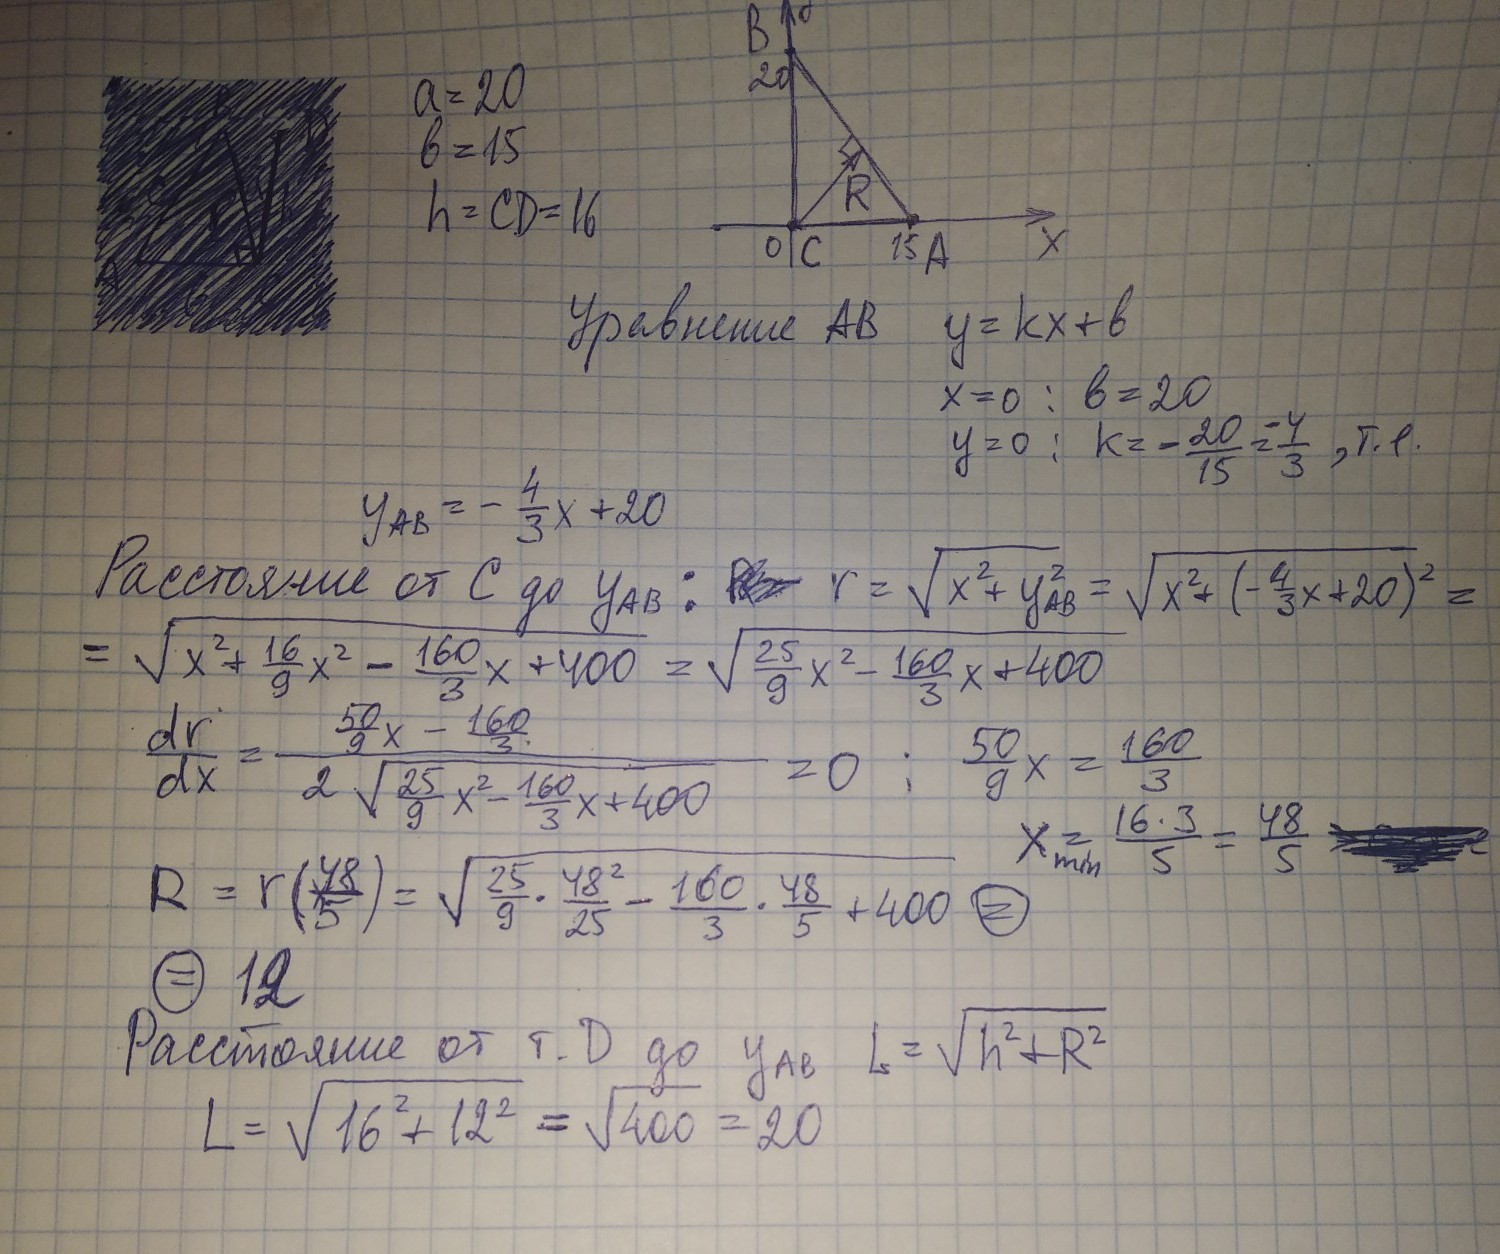 a=20
в=15
h=CD=16
B
20
R
0 C 15 A X
Уравнение AB y=kx+в
x=0 : в=20
y=0 : k=-20/15=-4/3, т.е.
y_AB = -4/3 x+20
Расстояние от C до y_AB: r = √(x²+y²_AB) = √(x²+(-4/3 x+20)²) =
= √(x²+16/9 x² - 160/3 x +400) = √(25/9 x² - 160/3 x+400)
dr/dx = (50/9 x - 160/3)/(2√(25/9 x² - 160/3 x+400)) =0 ; 50/9 x = 160/3
x_min = 16·3/5 = 48/5
R = r(48/5) = √(25/9 · 48²/25 - 160/3 · 48/5 +400) =
= 12
Расстояние от т. D до y_AB L = √(h²+R²)
L = √(16²+12²) = √400 = 20